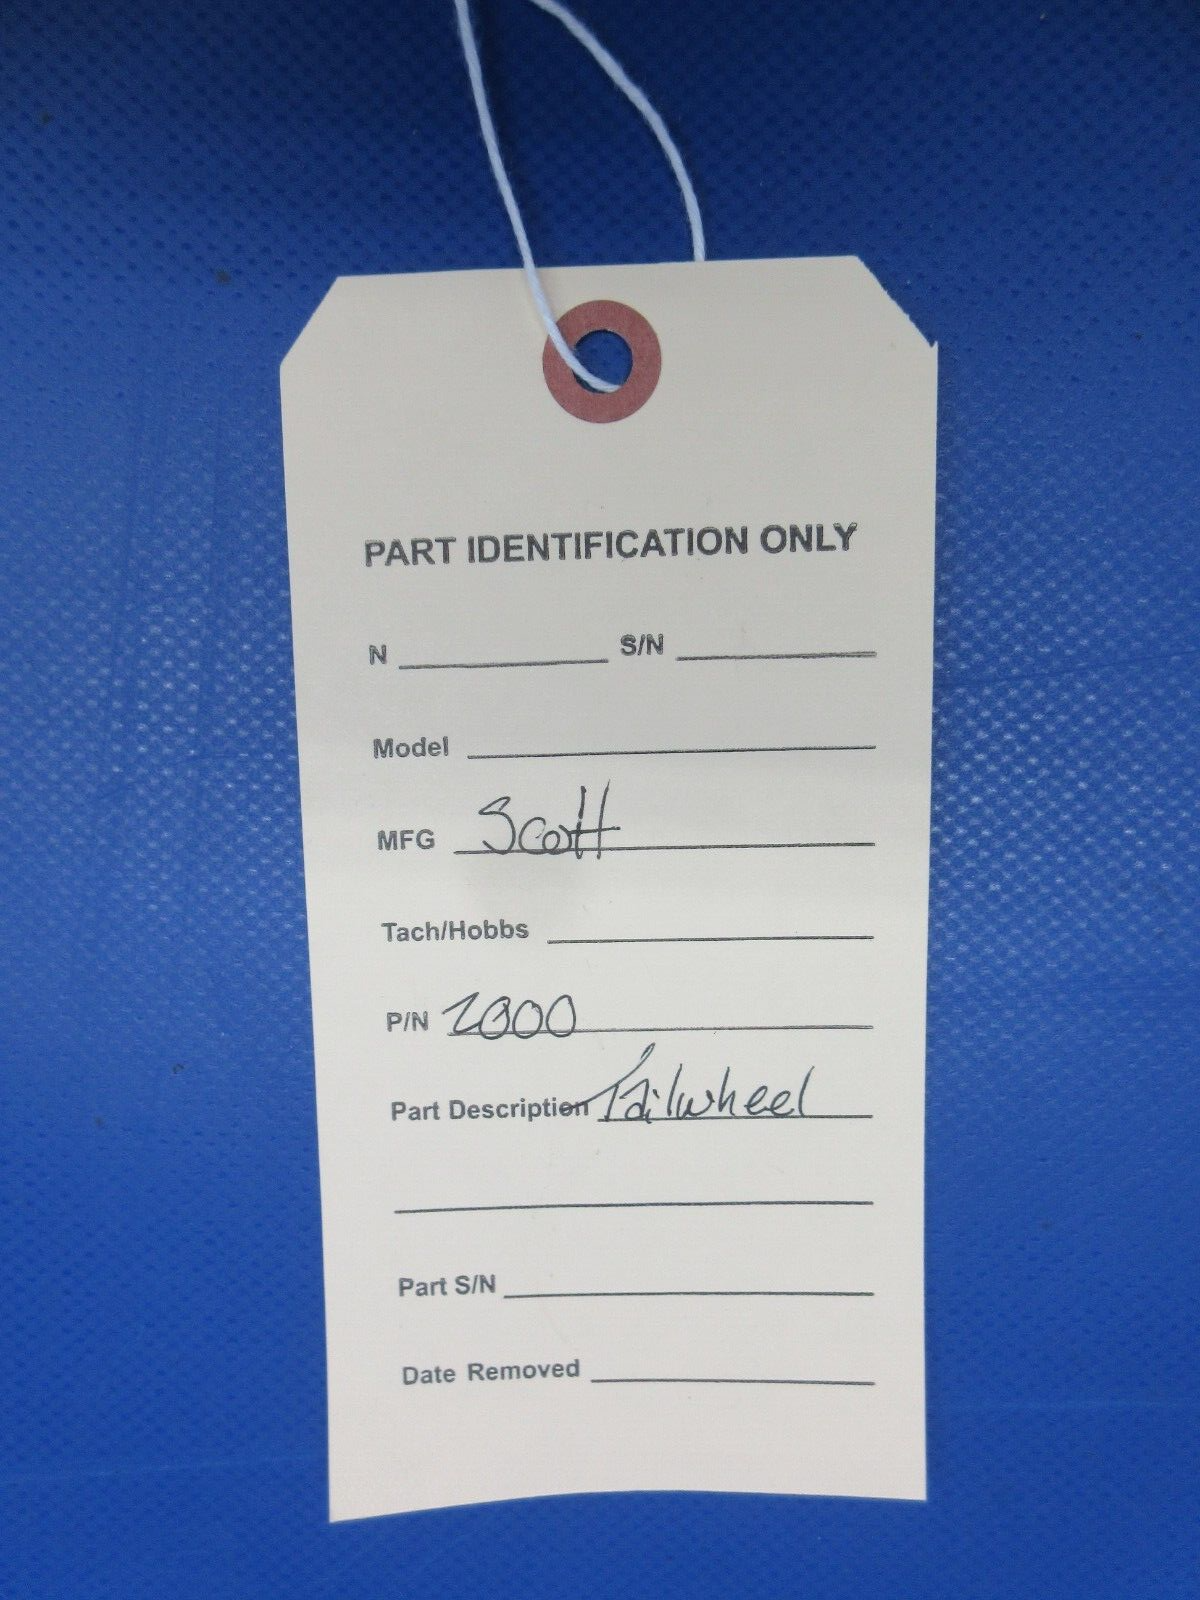 PART IDENTIFICATION ONLY
N S/N
Model
MFG Scott
Tach/Hobbs
P/N 2000
Part Description Tailwheel
Part S/N
Date Removed